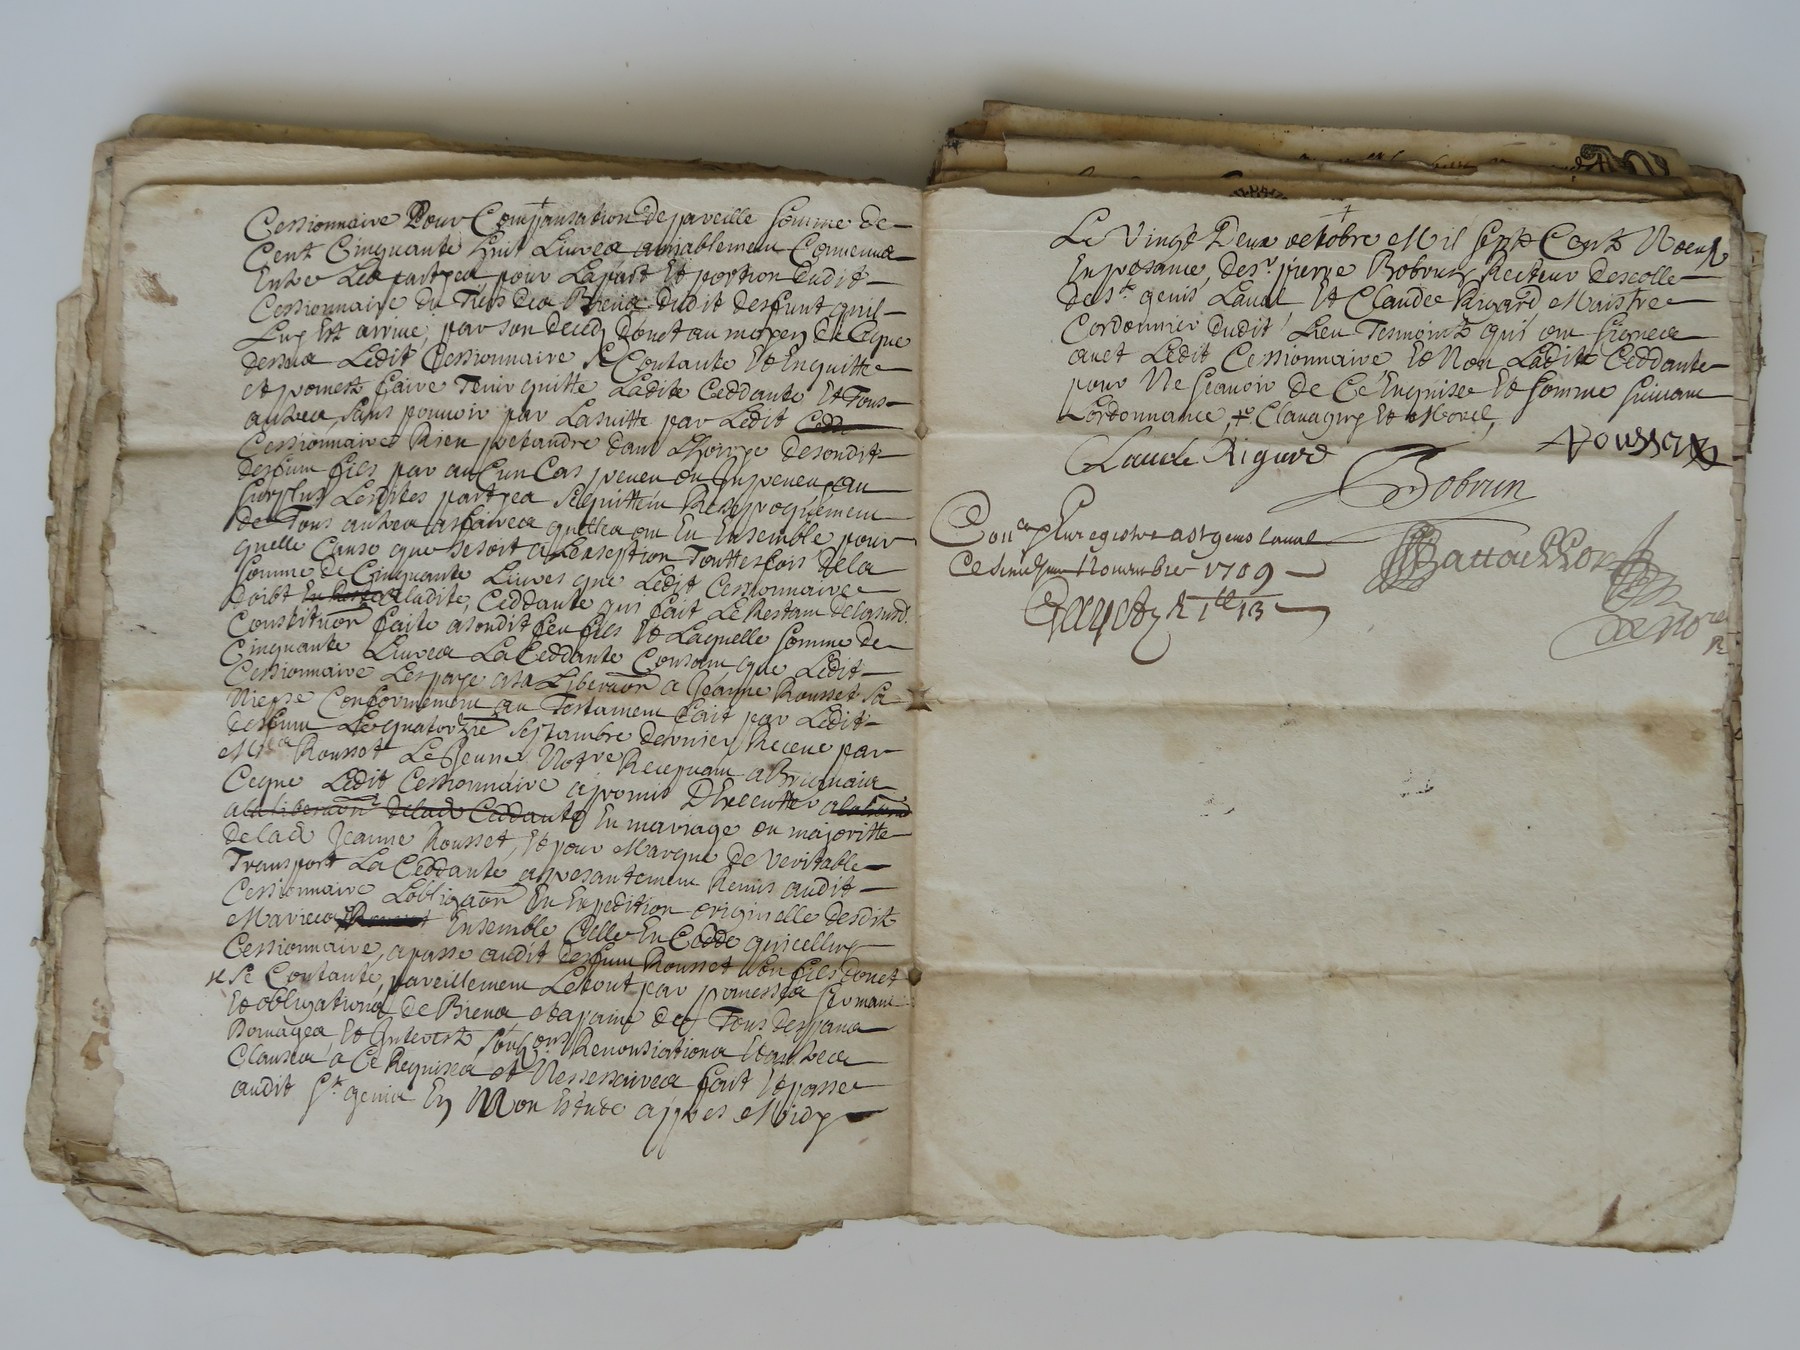 Cessionnaire Pour Compansation de pareille somme de
Cent Cinquante huit Livres amiablement Convenue
Entre Les partyes pour La part Et portion dudit
Cessionnaire du Tiers des Biens dudit deffunt quil
Luy Est arrive, par son deced donct au moyen de Ceque
dessus Ledit Cessionnaire se Contante Et Enquitte
et promest faire Tenir quitte Ladite Ceddante Et Tous
autres sans pouvoir par La suitte par Ledit
Cessionnaire Rien pretandre dans Lhoirye desondit
deffunt fils par aucun Cas preveu ou Inpreveu au
surplus Lesdites partyes sequittent Resiproquement
de Tous autres affaires quelles ont Eu Ensemble pour
quelle Cause que Se soit a Lexseption Touttesfois dela
somme de Cinquante Livres que Ledit Cessionnaire
doibt a ladite Ceddante qui fait Le Restant de
Constituon faite asondit feu fils Et Laquelle somme de
Cinquante Livres La Ceddante Consant que Ledit
Cessionnaire Les paye a Jeanne Rousset sa
Niepse Conformement au Testament fait par Ledit
deffunt Le quatorzie Septambre dernier Receu par
Me Rousset Le Jeune Notre Recepuant a Brignais
Ceque Ledit Cessionnaire a promis Dexecutter
a la liberaon de lad Ceddante En mariage ou majoritte
de lad Jeanne Rousset, Et pour Marque de Veritable
Transport La Ceddante a presantement Remis audit
Cessionnaire Lobligaon En Expedition originelle desdit
Ensemble Celle En Cedde quicelluy
Cessionnaire, a passe audit deffunt Rousset son fils donct
Se Contante, pareillement Le tout par promesses serment
Et obligations de Biens et a paine de Tous despans
Domages Et Interest soubs Renonsiations Et autres
Clauses a Ce Requises et Nessessaires fait Et passe
audit St genis En Mon Estude appres Midy
Le Vingt Deux octobre Mil Sept Cent Noeuf
En presance, de sr pierre Bobrun Recteur descolle
de St genis Laval Et Claude Rigard Maistre
Cordonnier dudit Lieu Temoints qui ont Signes
avec Ledit Cessionnaire Et Non Ladite Ceddante
pour Ne Scavoir de Ce Enquise Et Somme Suivant
Lordonnance, Clavagny Et Morel
Rousset
Claude Rigard
Bobrun
Con Enregistre a St genis laval
Ce Novembre 1709